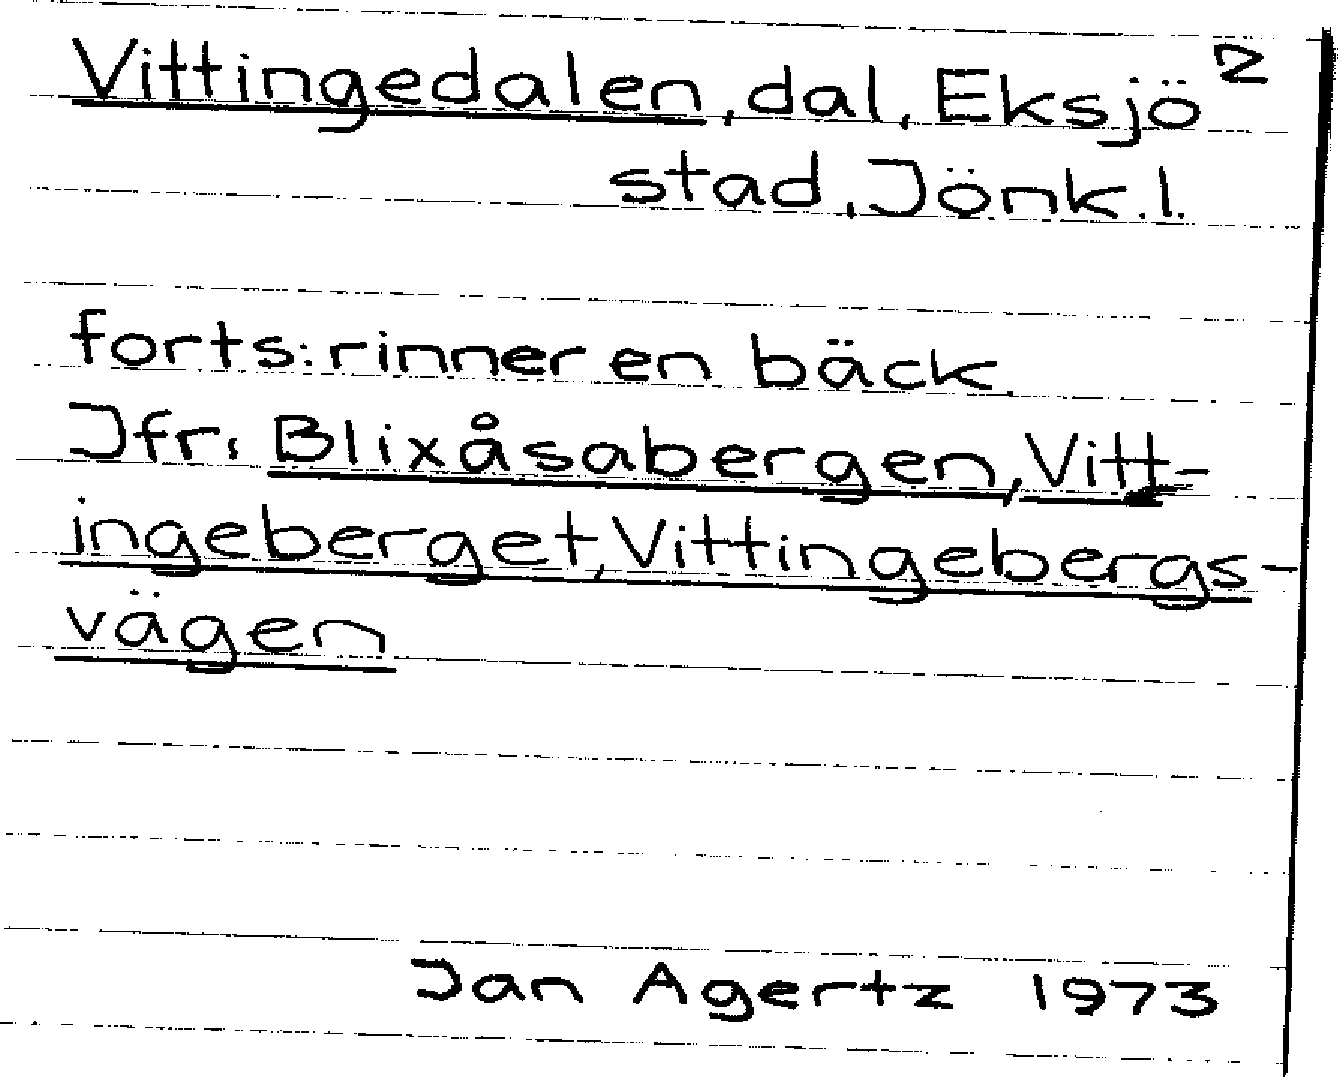 Vittingedalen, dal, Eksjö 2
stad, Jönk.l.
forts: rinner en bäck.
Jfr. Blixåsabergen, Vitt-
ingeberget, Vittingebergs-
vägen
Jan Agertz 1973